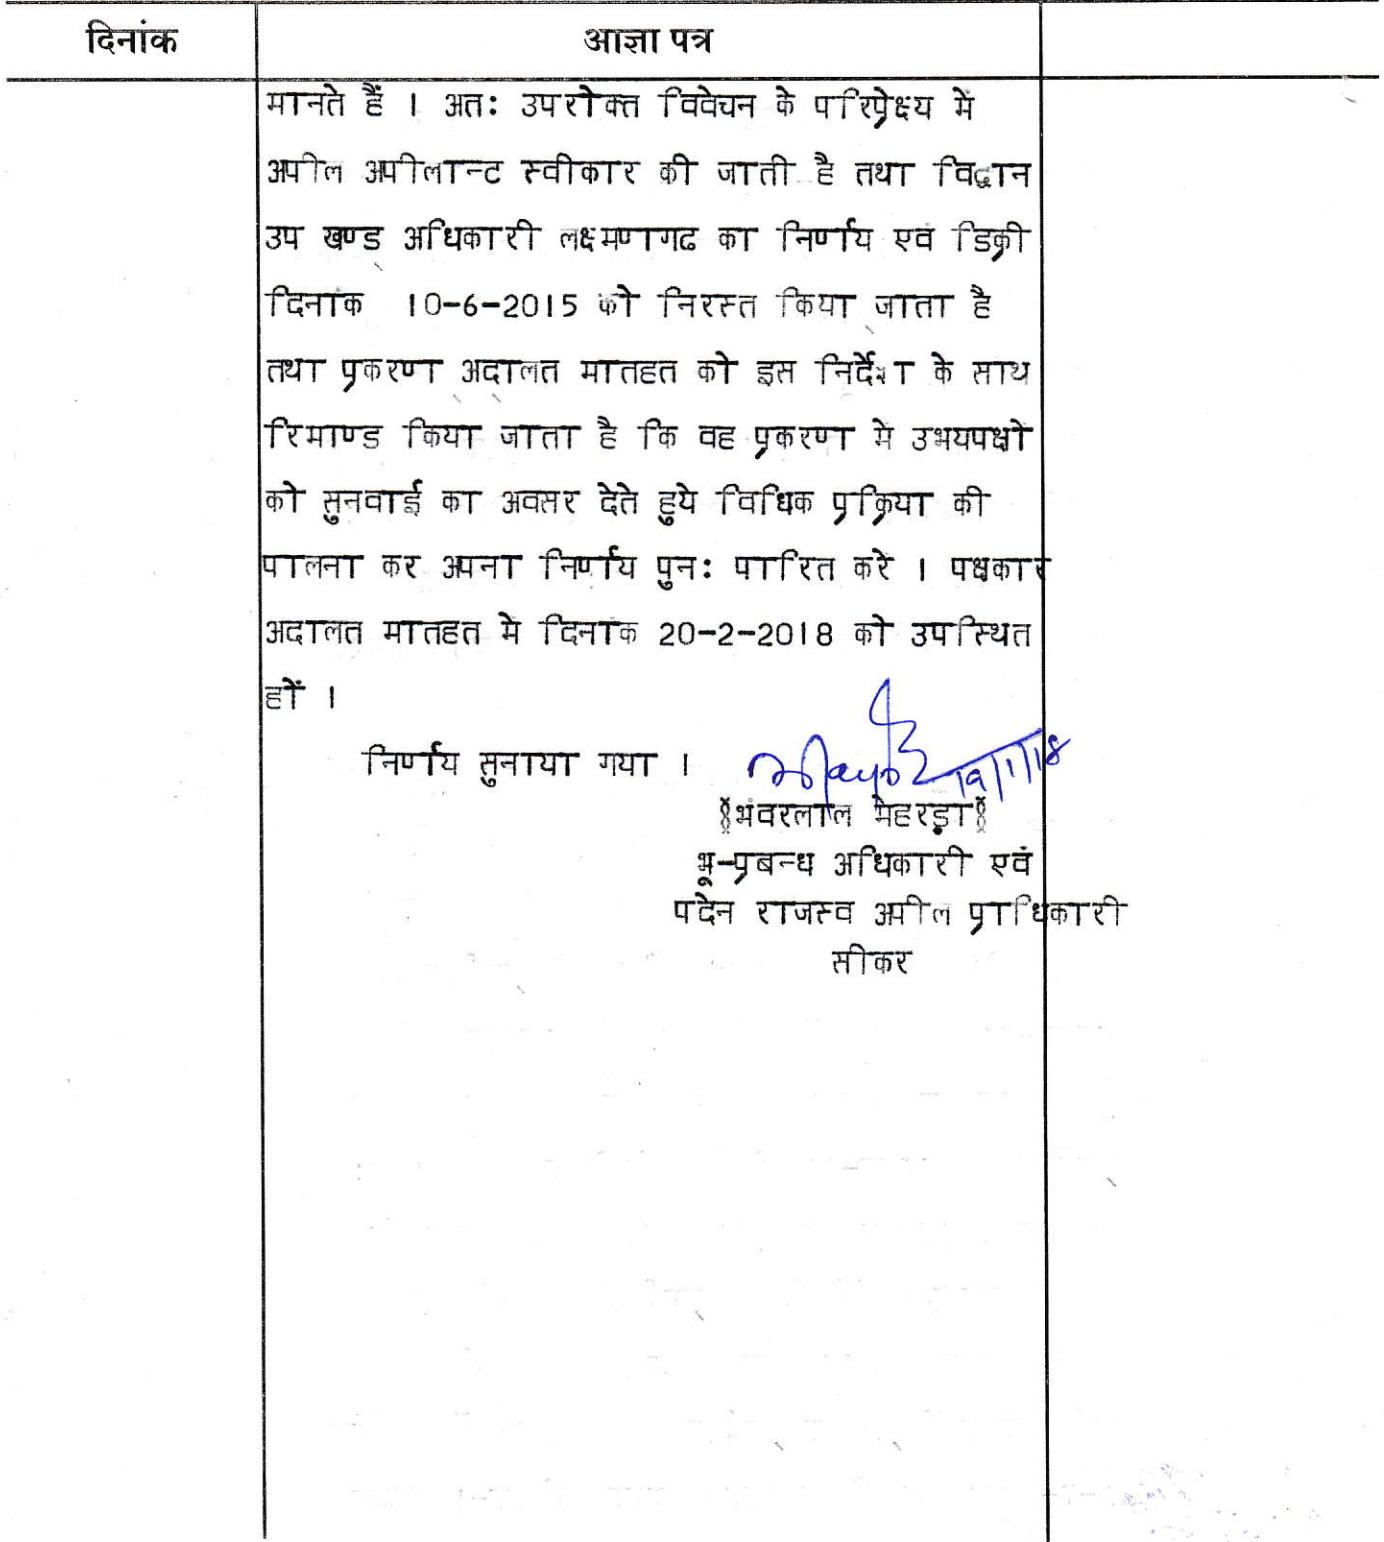 दिनांक आज्ञा पत्र
मानते हैं । अतः उपरोक्त विवेचन के परिप्रेक्ष्य में
अपील अपीलान्ट स्वीकार की जाती है तथा विद्वान
उप खण्ड अधिकारी लक्ष्मणगढ का निर्णय एवं डिक्री
दिनांक 10-6-2015 को निरस्त किया जाता है
तथा प्रकरण अदालत मातहत को इस निर्देश के साथ
रिमाण्ड किया जाता है कि वह प्रकरण मे उभयपक्षो
को सुनवाई का अवसर देते हुये विधिक प्रक्रिया की
पालना कर अपना निर्णय पुनः पारित करे । पक्षकार
अदालत मातहत मे दिनांक 20-2-2018 को उपस्थित
हों ।
निर्णय सुनाया गया ।
19/1/18
§भंवरलाल मेहरड़ा§
भू-प्रबन्ध अधिकारी एवं
पदेन राजस्व अपील प्राधिकारी
सीकर